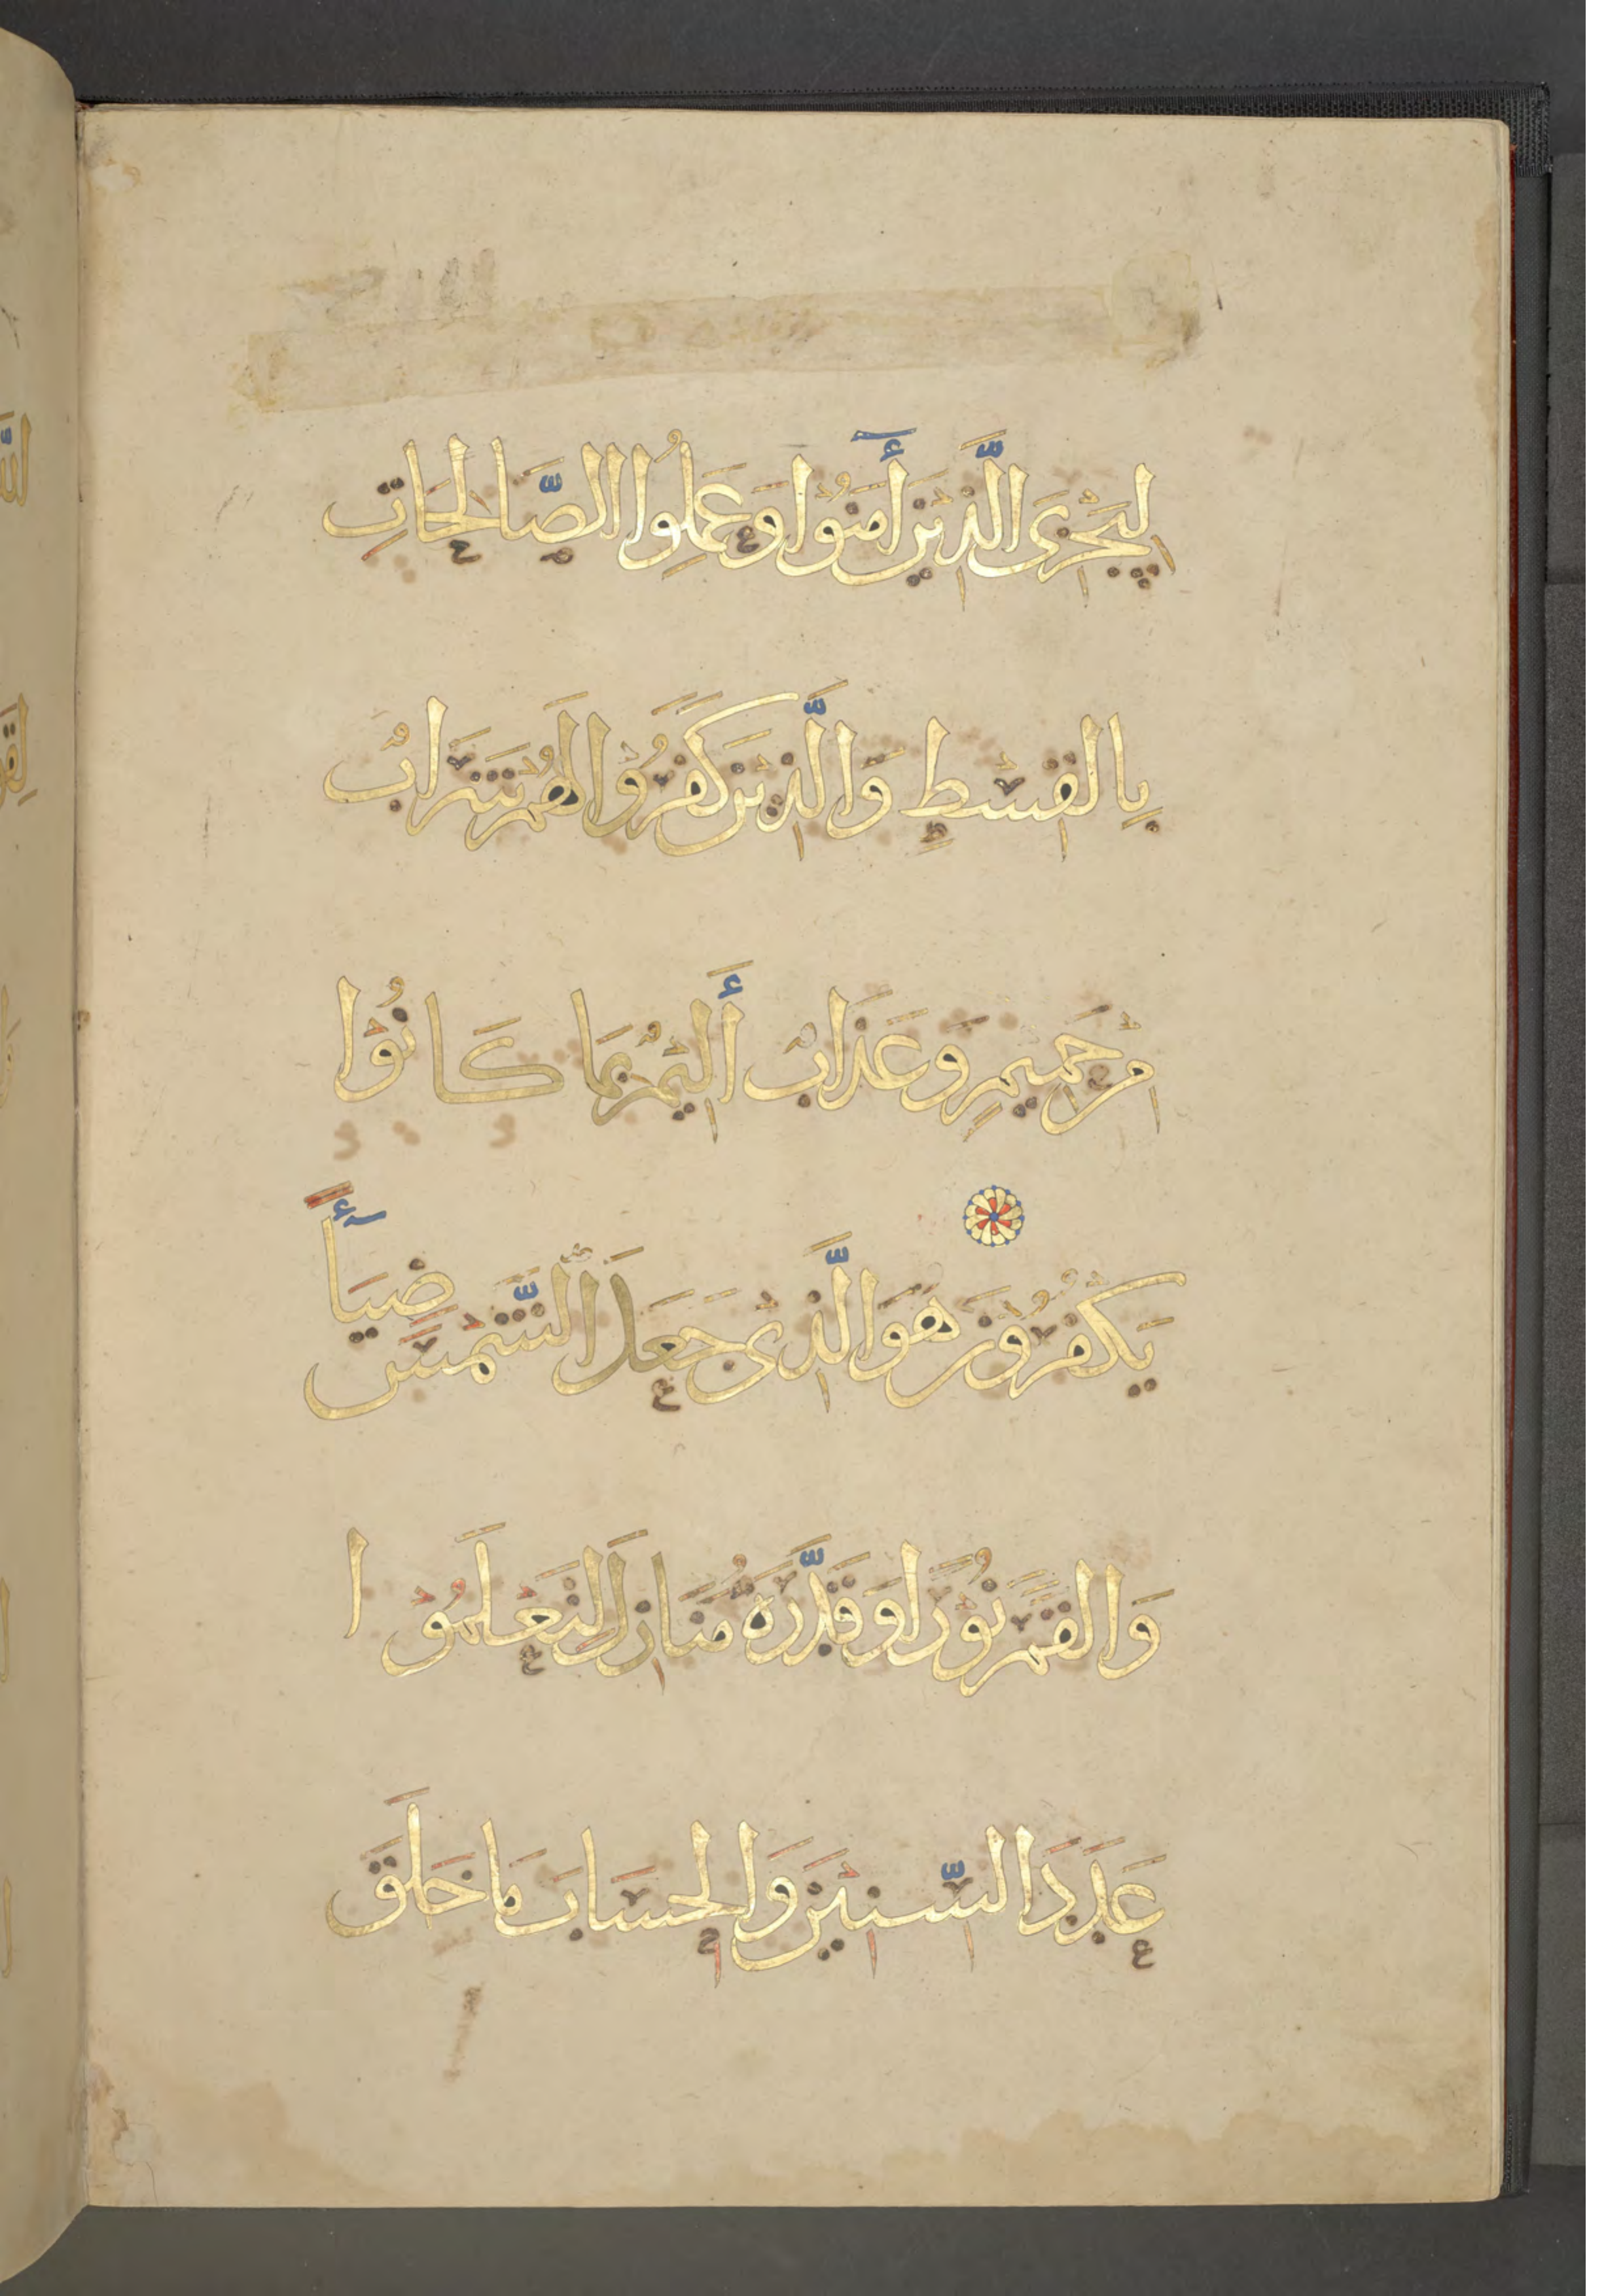 لِيَجْزِيَ الَّذِيْنَ أَمَنُوْا وَعَمِلُوا الصَّالِحَاتِ
بِالْقِسْطِ وَالَّذِيْنَ كَفَرُوْا لَهُمْ شَرَابٌ
مِنْ حَمِيمٍ وَعَذَابٌ أَلِيْمٌ بِمَا كَانُوْا
يَكْفُرُوْنَ هُوَ الَّذِيْ جَعَلَ الشَّمْسَ ضِيَاأً
وَالْقَمَرَ نُوْرًا وَقَدَّرَهُ مَنَازِلَ لِتَعْلَمُوْا
عَدَدَ السِّنِيْنَ وَالْحِسَابَ مَا خَلَقَ